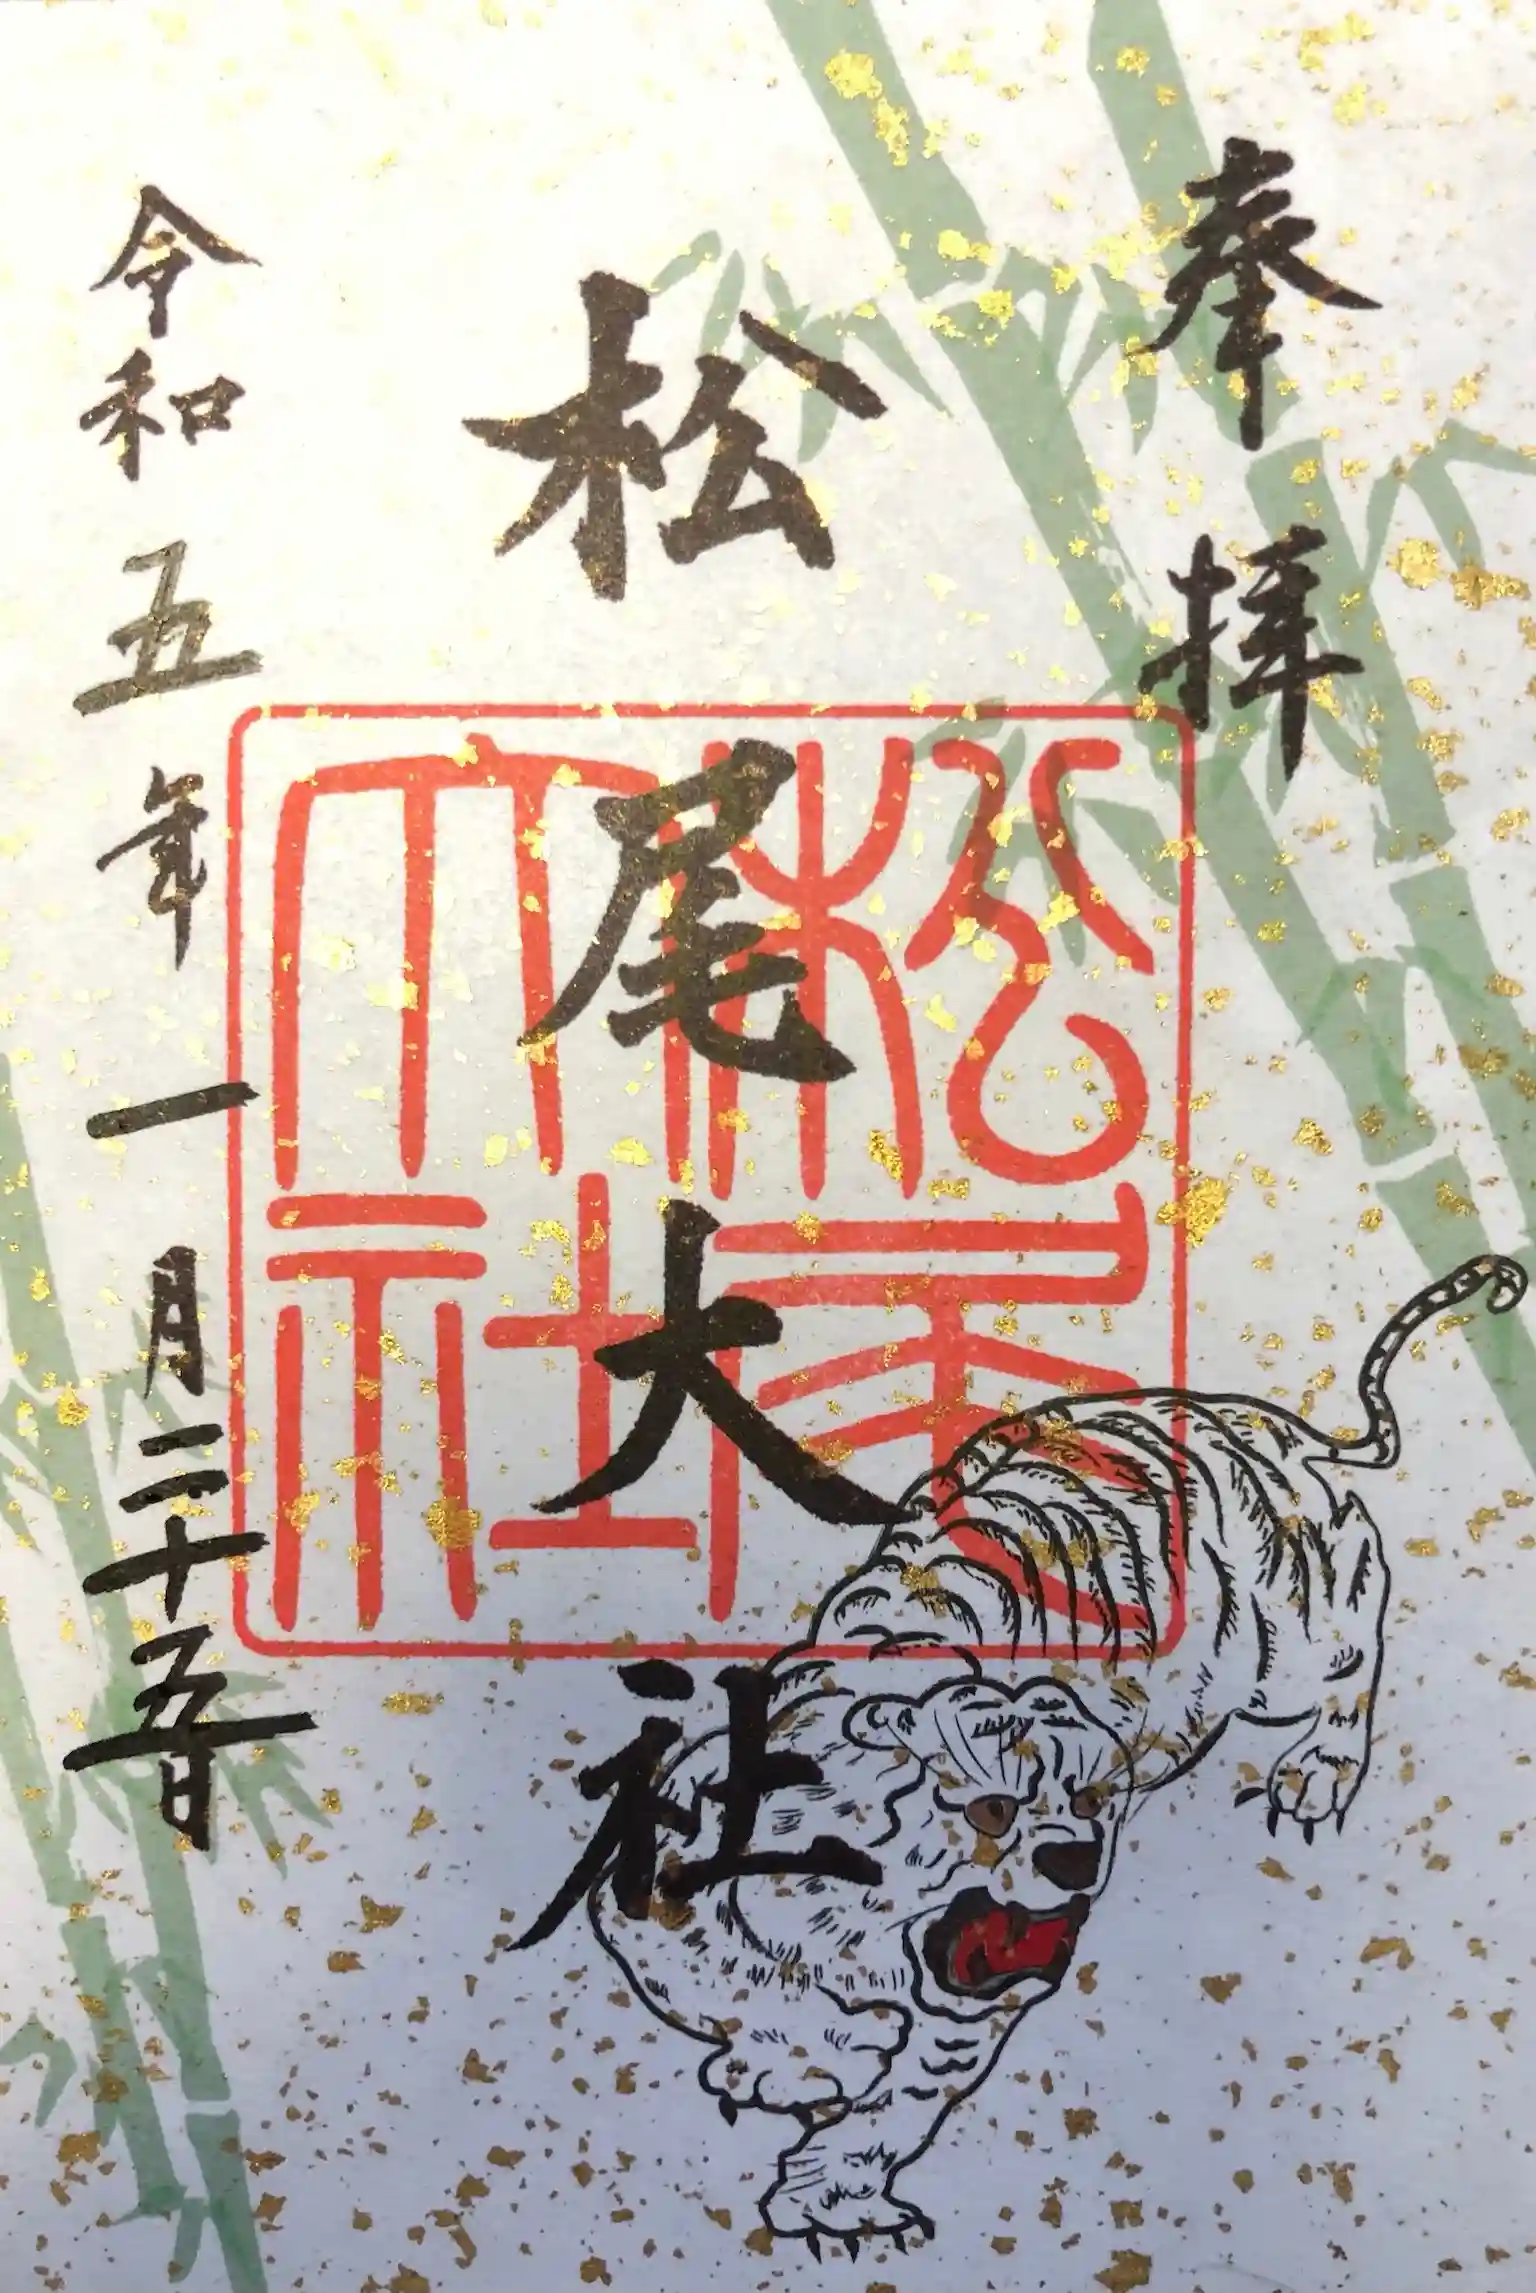 奉拝
松尾大社
松尾大社
令和五年一月二十五日